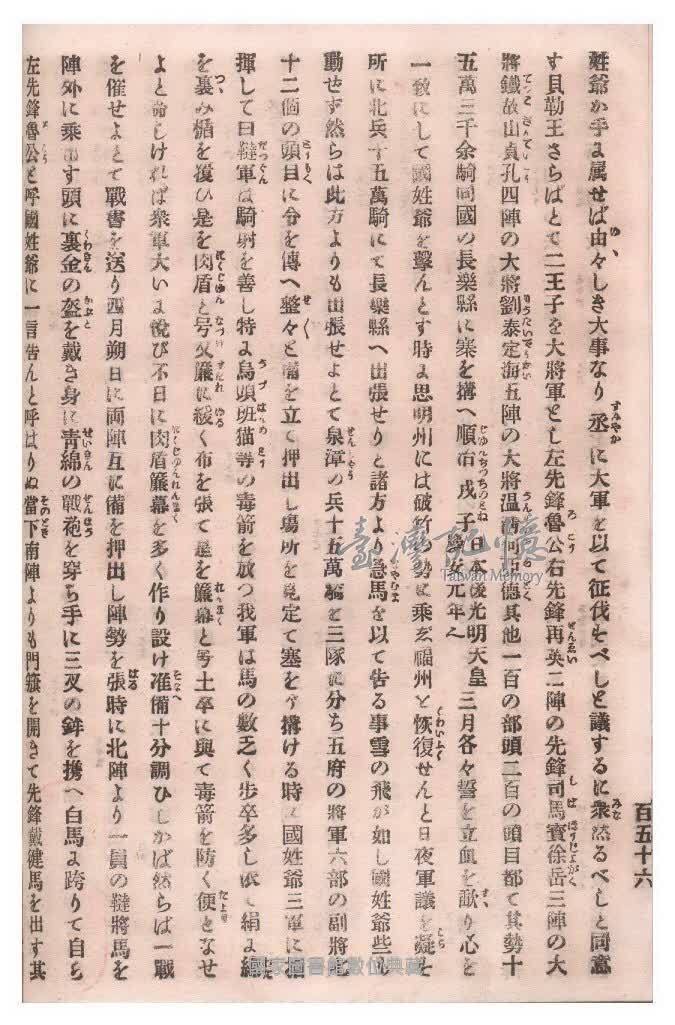 百五十六
姓爺か手ま属せば由々しき大事なり丞に大軍を以て征伐もべしと議するに衆然るべしと同意
す貝勒王さらばとて二王子を大將軍とし左先鋒魯公右先鋒再英二陣の先鋒司馬寶徐岳三陣の大
將鐵故山貞孔四陣の大將劉泰定海五陣の大將温 其他一百の部頭二百の頭目都て其勢十
五萬三千余騎同國の長樂縣に寨を搆へ順治戊子 日本後光明天皇慶安元年へ 三月各々誓を立血を歃り心を
一致にして國姓爺を擊んとす時ま思明州には破竹の勢に乘玄福州を恢復せんと日夜軍議を凝を
所に北兵十五萬騎にて長樂縣へ出張せりと諸方より急馬を以て告る事雪の飛が如し國姓爺些も
動せず然らは此方よりも出張せよとて泉漳の兵十五萬騎を三隊に分ち五府の將軍六部の副將七
十二個の頭目に令を傳へ整々と備を立て押出し塲所を見定て塞をぞ搆ける時に國姓爺三軍に指
揮して曰韃軍は騎射を善し特ま烏頭班猫等の毒箭を放つ我軍は馬の數乏く步卒多し依て絹ま綿
を裹み楯を覆ひ是を肉盾と号又簾に緩く布を張て是を簾幕と号士卒に與て毒箭を防く便となせ
よと命しければ衆軍大いま悅び不日に肉盾簾幕を多く作り設け准備十分調ひしかば然らば一戰
を催せよとて戰書を送り四月朔日に両陣互に備を押出し陣勢を張時に北陣より一員の韃將馬を
陣外に乘出す頭に裏金の盔を戴き身に靑綿の戰袍を穿ち手に三叉の鉾を携へ白馬ま跨りて自ら
左先鋒魯公と呼國姓爺に一言吿んと呼はりぬ當下南陣よりも門籏を開きて先鋒戴健馬を出す其
臺灣記憶
Taiwan Memory
國家圖書館數位典藏